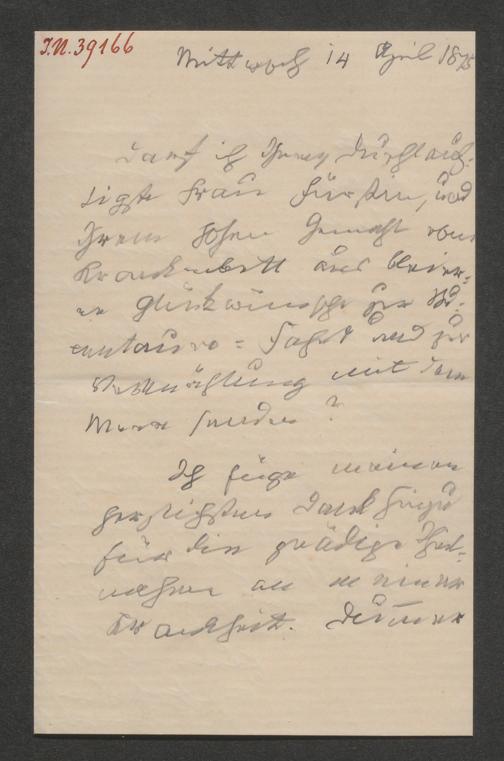 I.N. 39166
Mittwoch 14 April 1875
Darf ich Ihnen, Durchlauch-
tigste Frau Fürstin, und
Ihrem hohen Gemahl vom
Krankenbett aus
Glückwünsche zur
Fahrt und zur
Vermählung mit dem
Meer senden?
Ich füge meinen
herzlichsten Dank hinzu
für die gnädige Theil-
nahme an meiner
Krankheit.